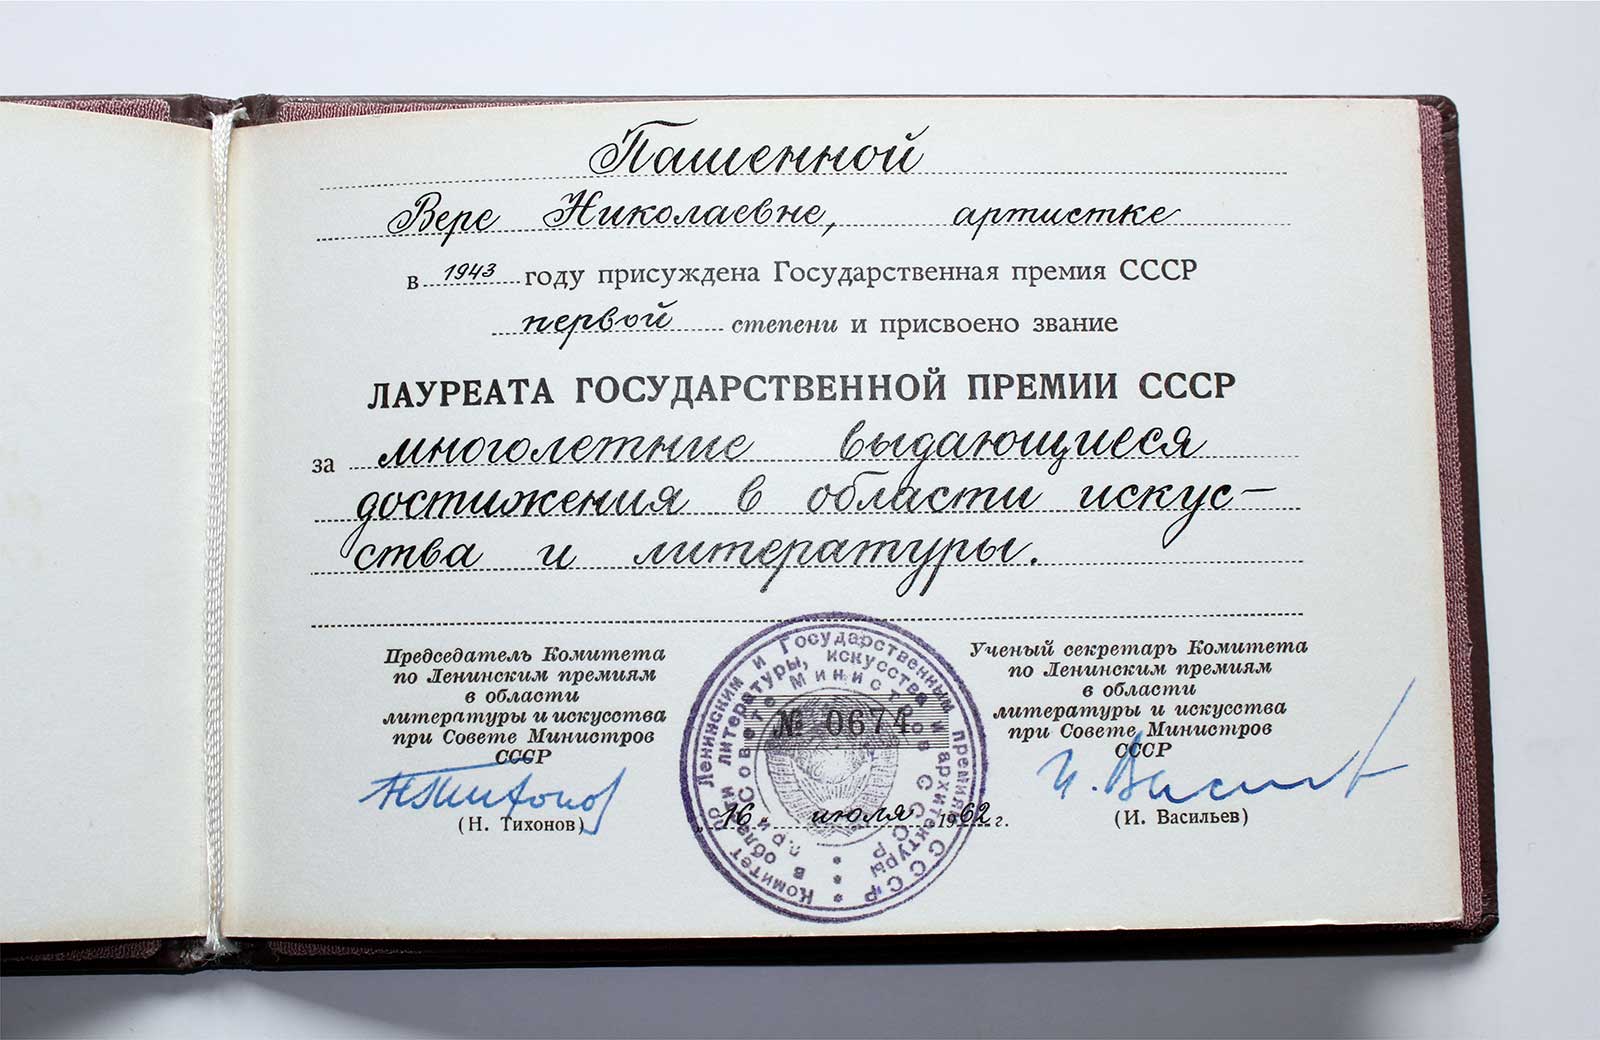 Пашенной
Вере Николаевне, артистке
в 1943 году присуждена Государственная премия СССР
первой степени и присвоено звание
ЛАУРЕАТА ГОСУДАРСТВЕННОЙ ПРЕМИИ СССР
за многолетние выдающиеся
достижения в области искус-
ства и литературы.
Председатель Комитета
по Ленинским премиям
в области
литературы и искусства
при Совете Министров
СССР
Н Тихонов
(Н. Тихонов)
Комитет по Ленинским и Государственным премиям СССР
в области литературы, искусства и архитектуры
при Совете Министров СССР
№ 0674
„16“ июля 1962 г.
Ученый секретарь Комитета
по Ленинским премиям
в области
литературы и искусства
при Совете Министров
СССР
И. Васильев
(И. Васильев)